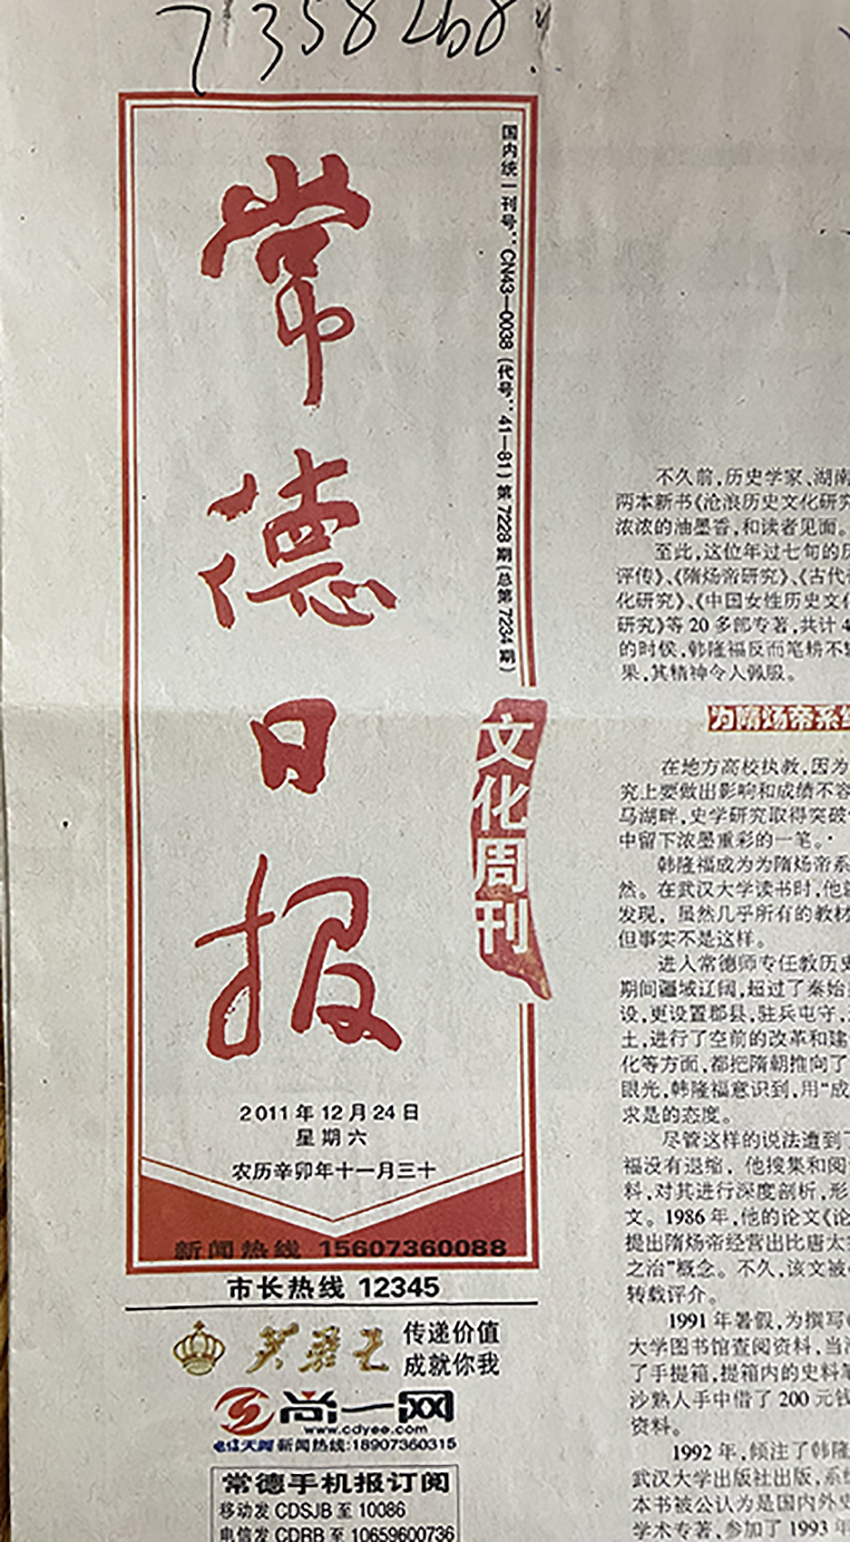 7358268
国内统一刊号:CN43—0038 (代号:41—81) 第7228期 (总第7234期)
常德日报
文化周刊
2011年12月24日
星期六
农历辛卯年十一月三十
新闻热线 15607360088
市长热线 12345
芙蓉王
传递价值
成就你我
尚一网
www.cdyee.com
新闻热线:18907360315
常德手机报订阅
移动发 CDSJB 至 10086
电信发 CDRB 至 10659600736
不久前,历史学家、湖南
两本新书《沧浪历史文化研究
浓浓的油墨香,和读者见面。
至此,这位年过七旬的历
评传》、《隋炀帝研究》、《古代
化研究》、《中国女性历史文化
研究》等20多部专著,共计4
的时候,韩隆福反而笔耕不辍
果,其精神令人佩服。
为隋炀帝系
在地方高校执教,因为
究上要做出影响和成绩不容
马湖畔,史学研究取得突破
中留下浓墨重彩的一笔。
韩隆福成为为隋炀帝系
然。在武汉大学读书时,他就
发现,虽然几乎所有的教材
但事实不是这样。
进入常德师专任教历史
期间疆域辽阔,超过了秦始
设,更设置郡县,驻兵屯守,
土,进行了空前的改革和建
化等方面,都把隋朝推向了
眼光,韩隆福意识到,用“成
求是的态度。
尽管这样的说法遭到了
福没有退缩,他搜集和阅
料,对其进行深度剖析,形
文。1986年,他的论文《论
提出隋炀帝经营出比唐太
之治”概念。不久,该文被
转载评介。
1991年暑假,为撰写
大学图书馆查阅资料,当
了手提箱,提箱内的史料笔
沙熟人手中借了200元钱
资料。
1992年,倾注了韩隆
武汉大学出版社出版,系统
本书被公认为是国内外史
学术专著,参加了1993年